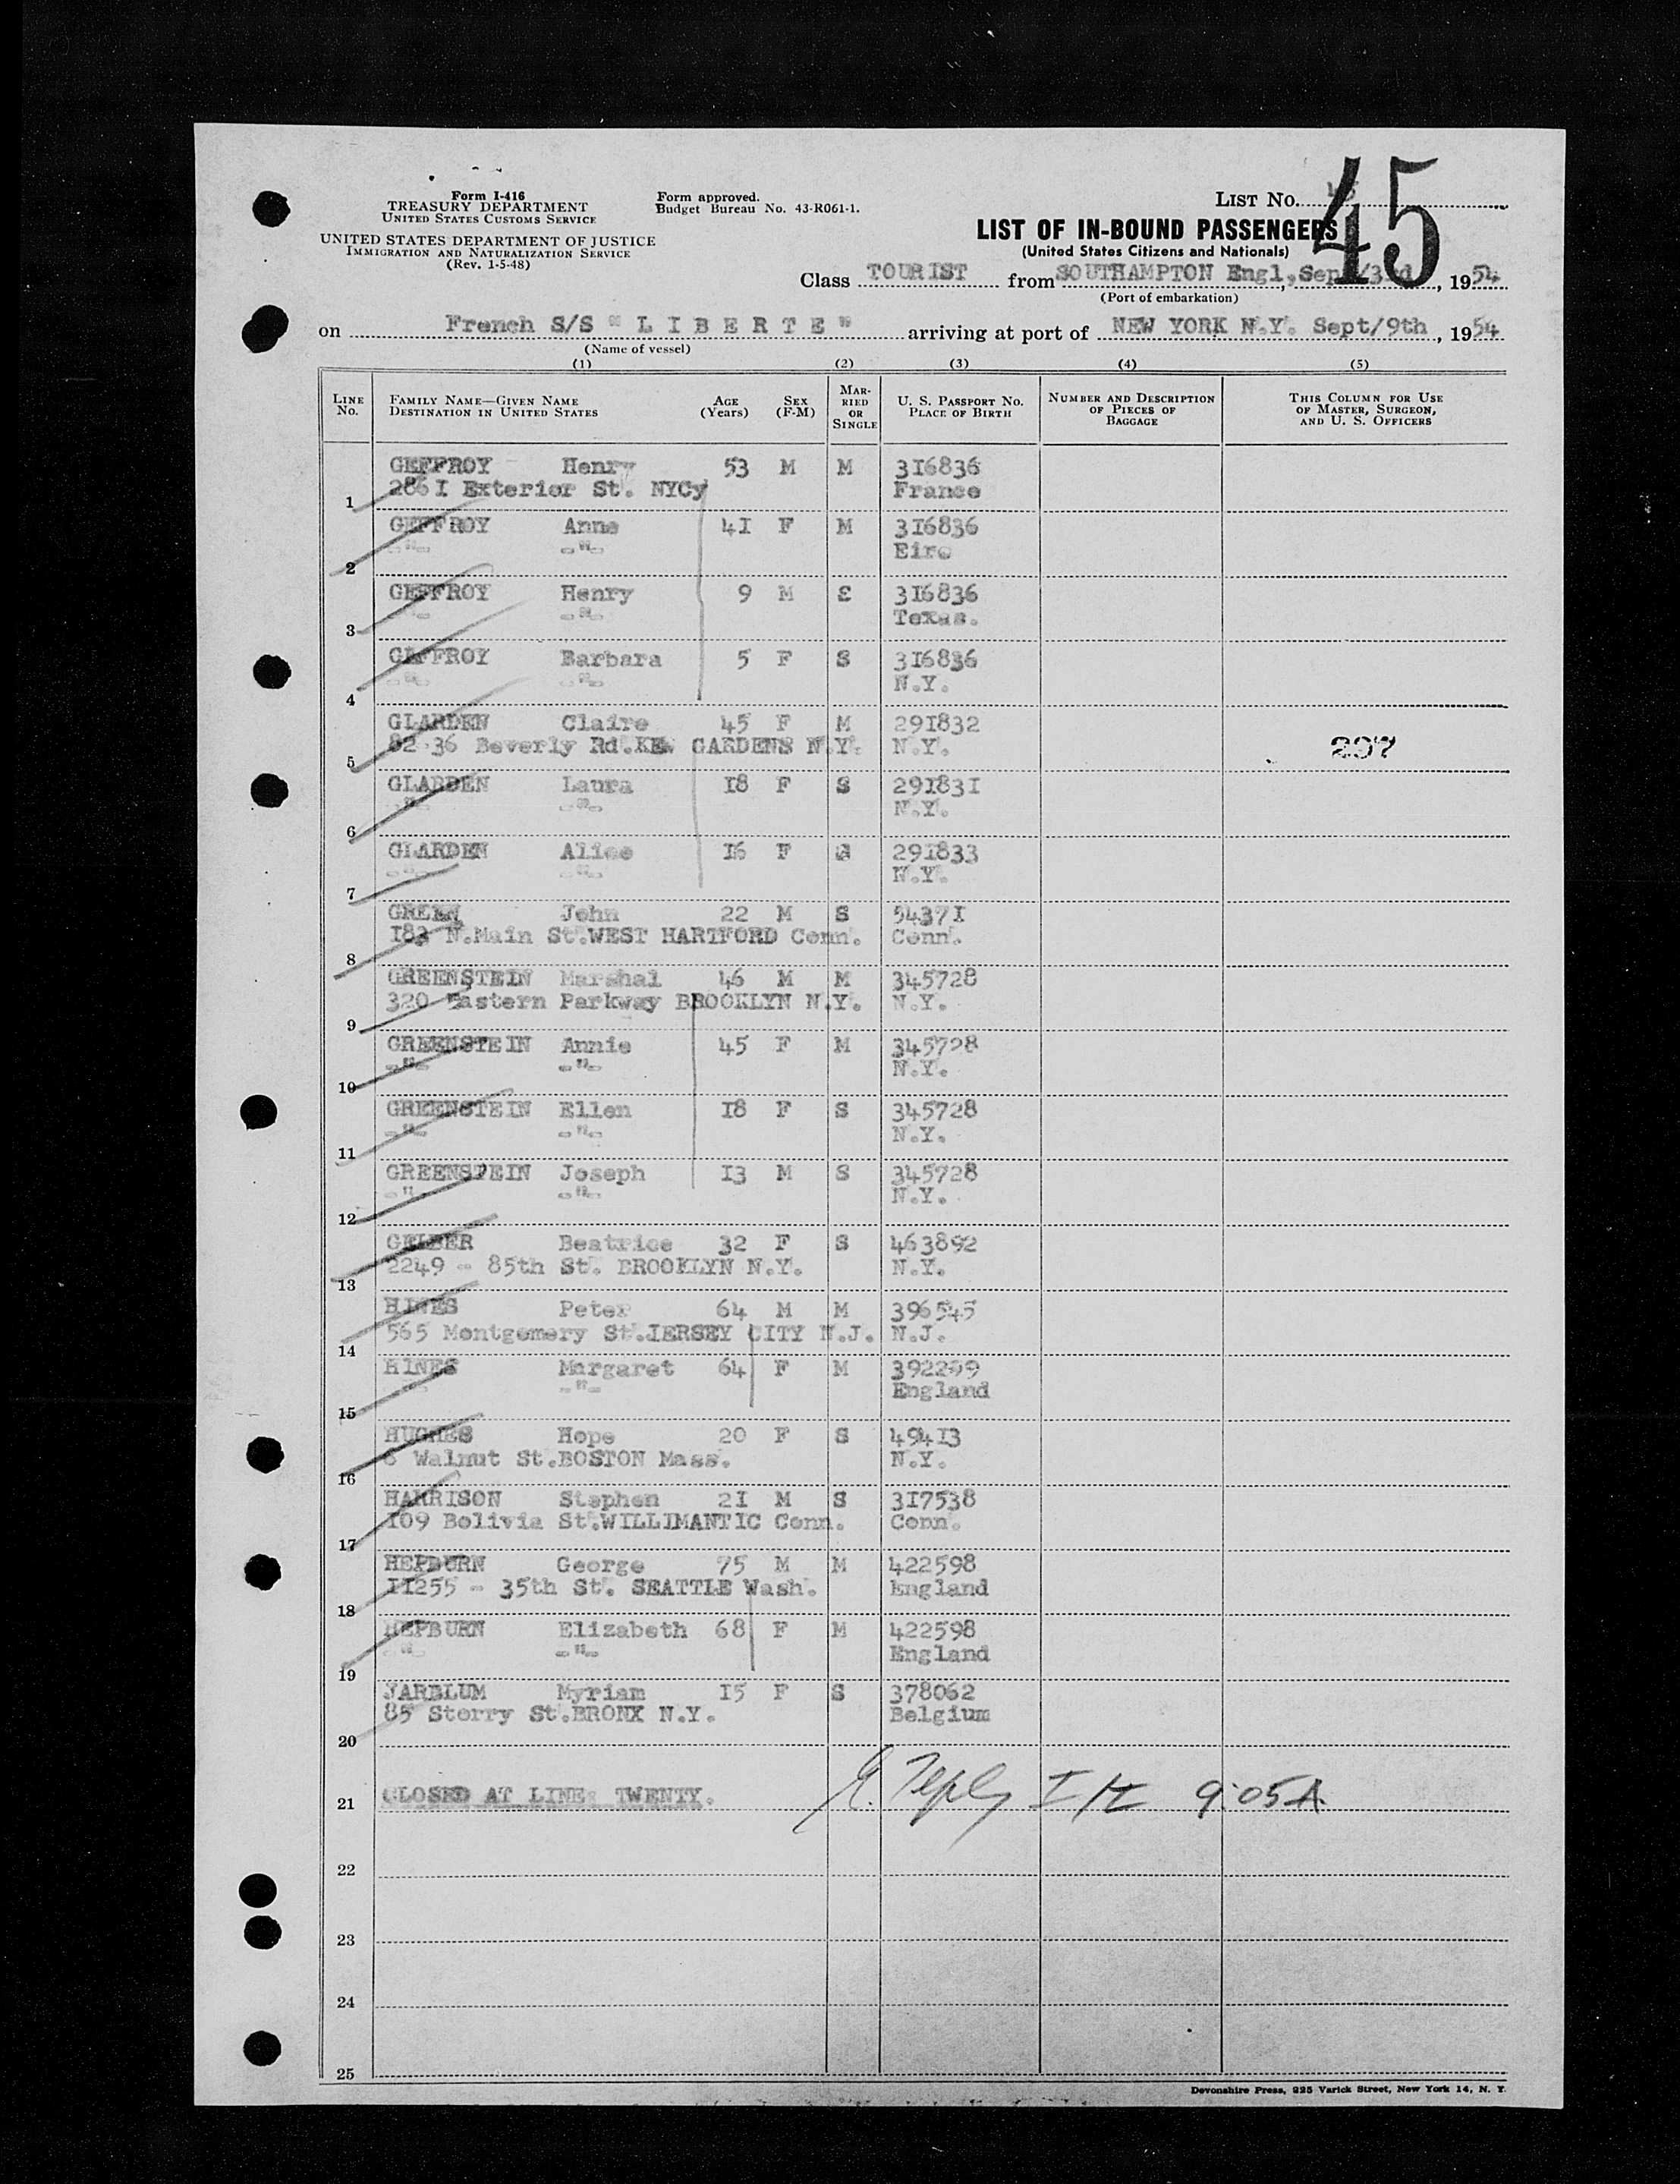 Form I-416
TREASURY DEPARTMENT
UNITED STATES CUSTOMS SERVICE
UNITED STATES DEPARTMENT OF JUSTICE
IMMIGRATION AND NATURALIZATION SERVICE
(Rev. 1-5-48)
Form approved.
Budget Bureau No. 43-R061-1.
LIST NO. 45
LIST OF IN-BOUND PASSENGERS
(United States Citizens and Nationals)
Class TOURIST from SOUTHAMPTON Engl, Sept/3rd, 1954
(Port of embarkation)
on French S/S " L I B E R T E " arriving at port of NEW YORK N.Y. Sept/9th, 1954
(Name of vessel)
(1) (2) (3) (4) (5)
LINE NO. FAMILY NAME—GIVEN NAME DESTINATION IN UNITED STATES AGE (Years) SEX (F-M) MARRIED OR SINGLE U. S. PASSPORT NO. PLACE OF BIRTH NUMBER AND DESCRIPTION OF PIECES OF BAGGAGE THIS COLUMN FOR USE OF MASTER, SURGEON, AND U. S. OFFICERS
GEFFROY Henry 53 M M 316836
1 2861 Exterior St. NYCy France
GEFFROY Anne 41 F M 316836
2 -"- -"- Eire
GEFFROY Henry 9 M S 316836
3 -"- -"- Texas.
GEFFROY Barbara 5 F S 316836
4 -"- -"- N.Y.
GLARDEN Claire 45 F M 291832
5 82-36 Beverly Rd.KEW GARDENS N.Y. N.Y. 207
GLARDEN Laura 18 F S 291831
6 -"- -"- N.Y.
GLARDEN Alice 16 F S 291833
7 -"- -"- N.Y.
GREEN John 22 M S 54371
8 183 N.Main St.WEST HARTFORD Conn. Conn.
GREENSTEIN Marshal 46 M M 345728
9 320 Eastern Parkway BROOKLYN N.Y. N.Y.
GREENSTEIN Annie 45 F M 345728
10 -"- -"- N.Y.
GREENSTEIN Ellen 18 F S 345728
11 -"- -"- N.Y.
GREENSTEIN Joseph 13 M S 345728
12 -"- -"- N.Y.
GELBER Beatrice 32 F S 463892
13 2249 - 85th St. BROOKLYN N.Y. N.Y.
HINES Peter 64 M M 396545
14 565 Montgomery St.JERSEY CITY N.J. N.J.
HINES Margaret 64 F M
15 -"- -"- England
HUGHES Hope 20 F S 49413
16 8 Walnut St.BOSTON Mass. N.Y.
HARRISON Stephen 21 M S 317538
17 109 Bolivia St.WILLIMANTIC Conn. Conn.
HEPBURN George 75 M M 422598
18 11255 - 35th St. SEATTLE Wash. England
HEPBURN Elizabeth 68 F M 422598
19 -"- -"- England
JARBLUM Myriam 15 F S 378062
20 85 Storry St.BRONX N.Y. Belgium
21 CLOSED AT LINE: TWENTY. 9:05A
22
23
24
25
Devonshire Press, 225 Varick Street, New York 14, N. Y.